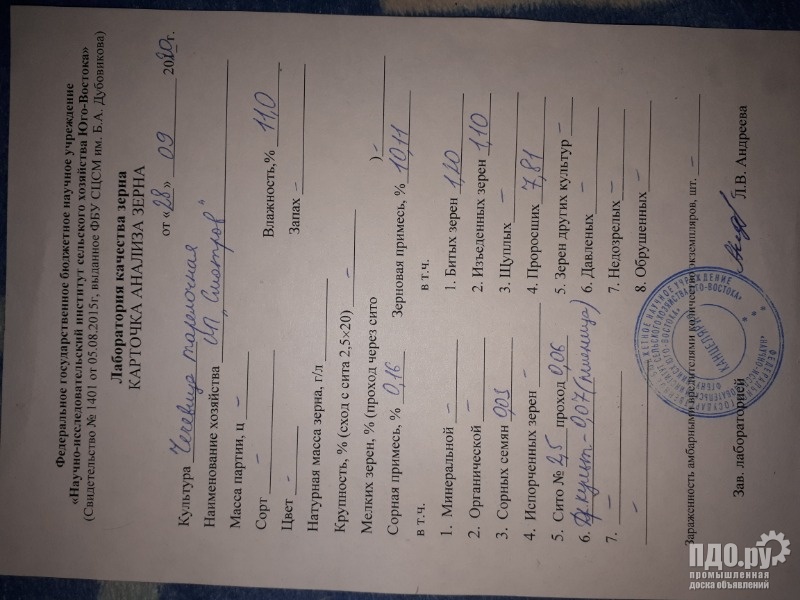 Федеральное государственное бюджетное научное учреждение
«Научно-исследовательский институт сельского хозяйства Юго-Востока»
(Свидетельство № 1401 от 05.08.2015г, выданное ФБУ СЦСМ им. Б.А. Дубовикова)
Лаборатория качества зерна
КАРТОЧКА АНАЛИЗА ЗЕРНА
от «28» 09 2020г.
Культура Чечевица тарелочная
Наименование хозяйства ИП
Масса партии, ц –
Сорт – Влажность,% 11,0
Цвет – Запах –
Натурная масса зерна, г/л
Крупность, % (сход с сита 2,5×20) –
Мелких зерен, % (проход через сито )–
Сорная примесь, % 0,16 Зерновая примесь, % 10,11
в т.ч. в т.ч.
1. Минеральной – 1. Битых зерен 1,20
2. Органической – 2. Изъеденных зерен 1,10
3. Сорных семян 0,03 3. Щуплых –
4. Испорченных зерен – 4. Проросших 7,81
5. Сито № 2,5 проход 0,06 5. Зерен других культур –
6. – 0,07 (пшеница) 6. Давленых –
7. – 7. Недозрелых –
– 8. Обрушенных –
Зараженность амбарными вредителями количество экземпляров, шт. –
Зав. лабораторией Л.В. Андреева
КАНЦЕЛЯРИЯ
ПДО.ру
промышленная
доска объявлений